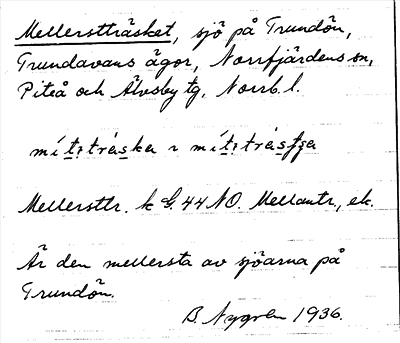 Mellerstträsket, sjö på Trundön,
Trundavans ägor, Norrfjärdens sn,
Piteå och Älvsby tg, Norrb. l.
Mellersttr. k G. 44 NO. Mellantr., ek.
Är den mellersta av sjöarna på
Trundön.
B. Nygren 1936.